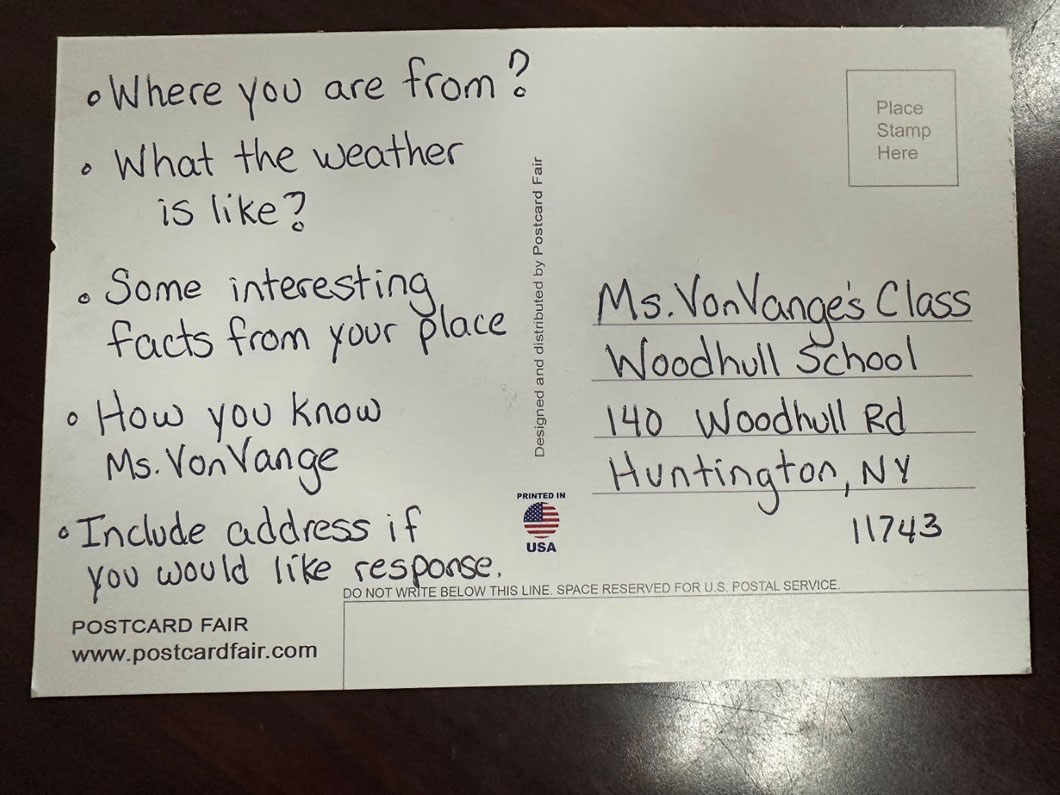 • Where you are from?
• What the weather
is like?
• Some interesting
facts from your place
• How you know
Ms. VonVange
• Include address if
you would like response.
POSTCARD FAIR
www.postcardfair.com
Designed and distributed by Postcard Fair
PRINTED IN
USA
Place
Stamp
Here
Ms. VonVange's Class
Woodhull School
140 Woodhull Rd
Huntington, NY
11743
DO NOT WRITE BELOW THIS LINE. SPACE RESERVED FOR U.S. POSTAL SERVICE.